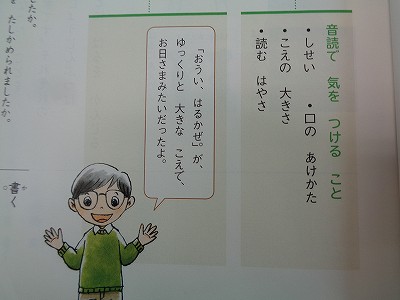 音読で 気を つける こと
・しせい ・口の あけかた
・こえの 大きさ
・読む はやさ
「おうい、はるかぜ。」が、
ゆっくりと 大きな こえで、
お日さまみたいだったよ。
たしかめられましたか。
書く